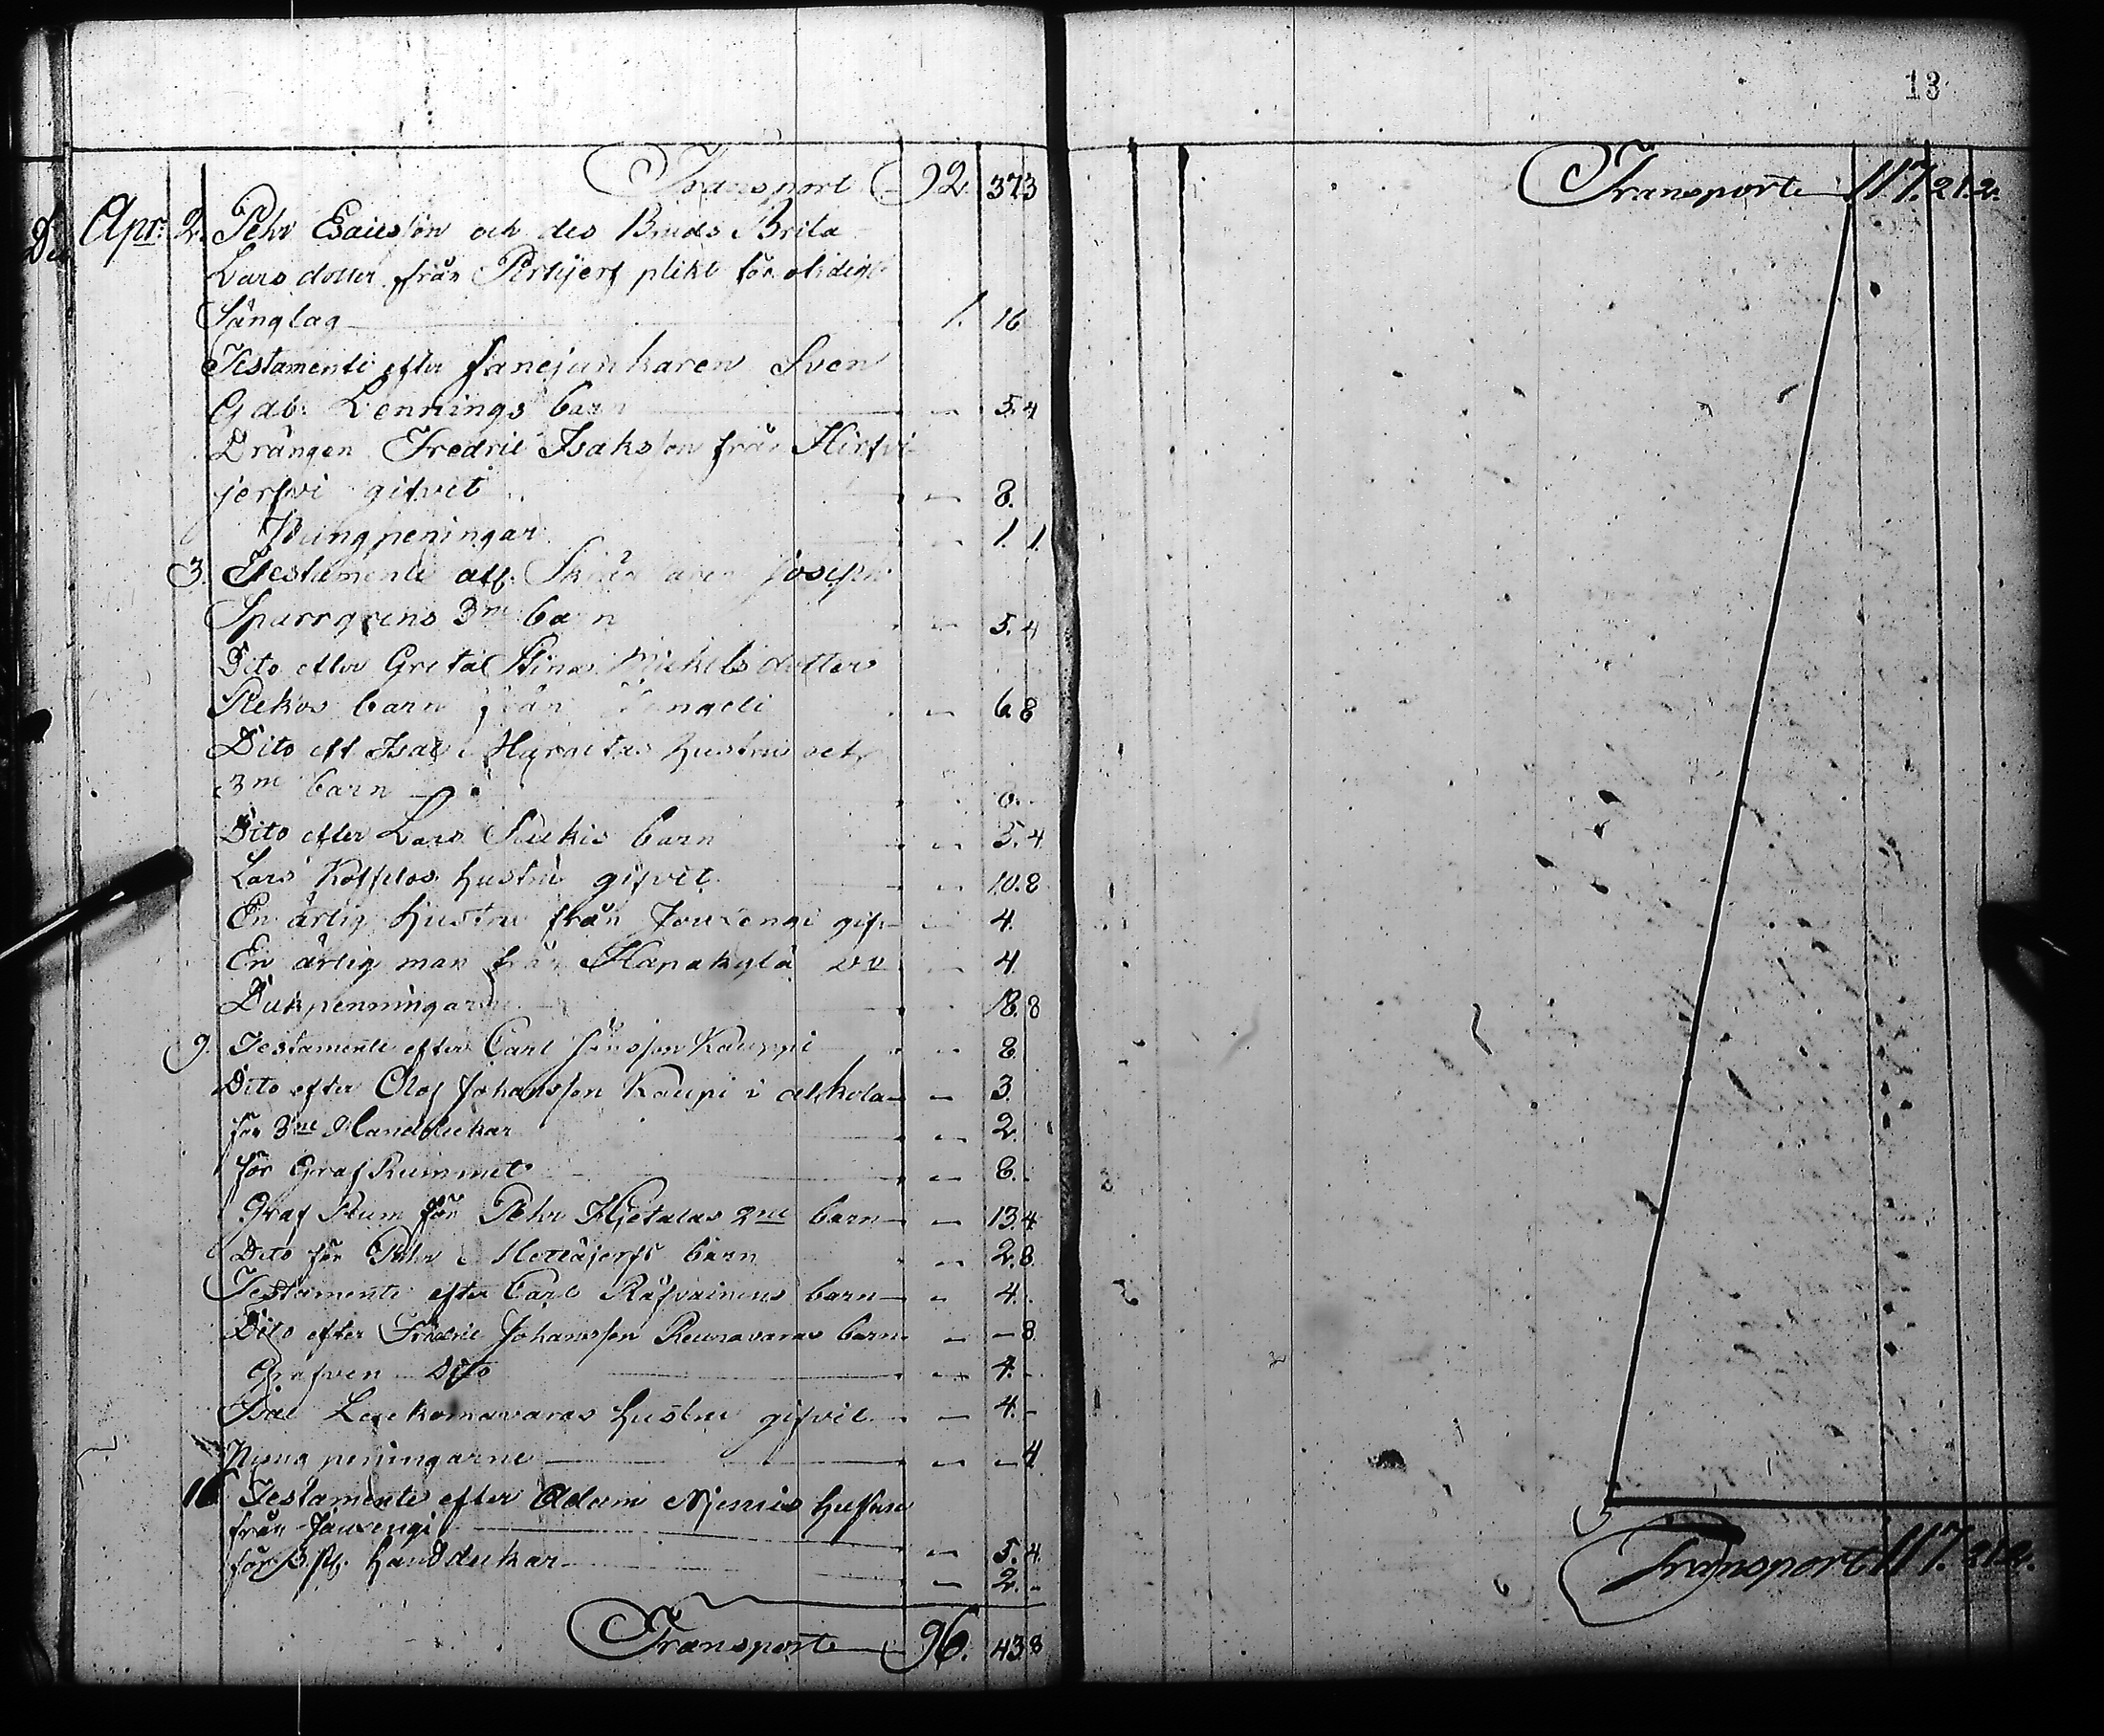 Transport 92. 37 3
Apr: 2. Pehr Esaiesson och des Bruds Brita
Lars dotter från plikt för otidigt
Sänglag 1. 16
Testamente efter fanejunkaren Sven
Gab: Lennings barn 5. 4
Drängen Fredric Isaksson från Hirfvi
jerfvi gifvit 8.
Pungpeningar 1. 1.
3. Testamente Joseph
Sparrgrens 3ne barn 5. 4
Dito efter Greta Stina Mickelsdotter
barn från 6 8
Dito eft Isac Hustru och
3ne barn
Dito efter Lars barn 5. 4
Lars hustru gifvit 10. 8
En ärlig hustru från Jouxengi gif 4.
En ärlig man från Hapakylä 4.
Dukpenningar 18. 8
9. Testamente efter Carl Jönsson Kauppi 8
Dito efter Olof Johansson Kaupi i alkola 3.
för 3ne Handdukar 2.
för Graf Rummet 8.
Graf Rum för Pehr Hjetalas 2ne barn 13. 4
Dito för Pehr barn 2. 8.
Testamente efter Carl Räfvainens barn 4.
Dito efter Fredric Johansson Reunavaras barn 8.
Grafven Dito 4.
Isac Leukomavaras hustru gifvit 4.
Pung peningarne 4
16 Testamente efter Adam Njemis hustru
från Jauxengi 5. 4.
för 3 St. handdukar 2.
Transporte 96. 43 8
13
Transporte 117. 21. 2.
Transport 117. 21. 2.